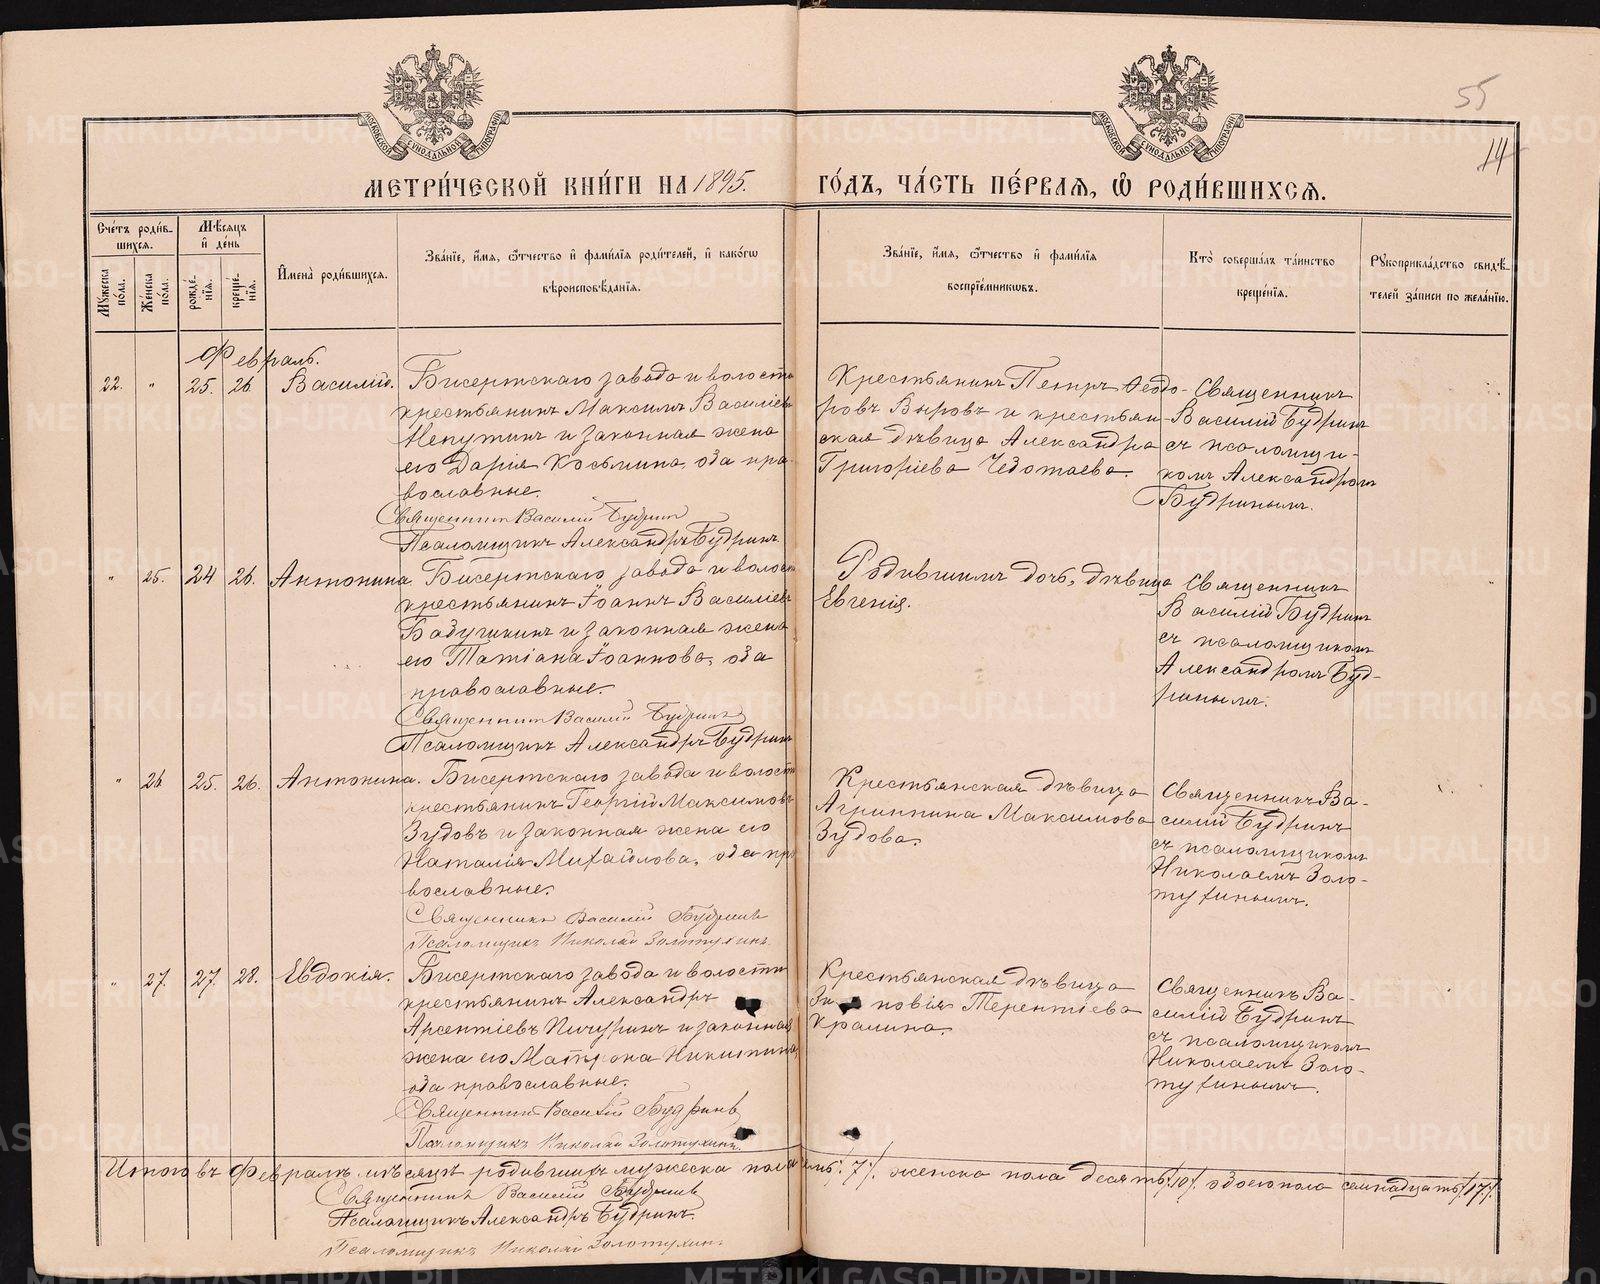 55
14
МЕТРИ́ЧЕСКОЙ КНИ́ГИ НА 1895.
ГО́ДЪ, ЧА́СТЬ ПЕ́РВАЯ, Ѽ РОДИ́ВШИХСЯ.
Сче́тъ роди́в-
шихся.
Мꙋ́жеска по́ла.
Же́нска по́ла.
Мѣ́сяцъ
и҆ де́нь
рожде́нїѧ.
креще́нїѧ.
И҆мена̀ роди́вшихся.
Зва́нїе, и҆́мя, ѻ҆́тчество и҆ фами́лїѧ роди́телей, и҆ како́гѡ
вѣроисповѣ́данїѧ.
Зва́нїе, и҆́мя, ѻ҆́тчество и҆ фами́лїѧ
воспрїе́мникѡвъ.
Кто̀ соверша́лъ та́инство
креще́нїѧ.
Рꙋкоприкла́дство свидѣ́-
телей за́писи по жела́нїю.
Февраль.
22. " 25. 26. Василій.
Бисертскаго завода и волости
крестьянинъ Максимъ Василіевъ
Непутинъ и законная жена
его Дарія Косьмина, оба пра-
вославные.
Священникъ Василій Будринъ
Псаломщикъ Александръ Будринъ.
Крестьянинъ Петръ Ѳеодо-
ровъ Выровъ и крестьян-
ская дѣвица Александра
Григоріева Чеботаева.
Священникъ
Василій Будринъ
съ псаломщи-
комъ Александромъ
Будринымъ.
" 25. 24 26. Антонина
Бисертскаго завода и волости
крестьянинъ Іоаннъ Василіевъ
Бабушкинъ и законная жена
его Татіана Іоаннова, оба
православные.
Священникъ Василій Будринъ
Псаломщикъ Александръ Будринъ
Родившимъ дочь, дѣвица
Евгенія.
Священникъ
Василій Будринъ
съ псаломщикомъ
Александромъ Буд-
ринымъ.
" 26 25. 26. Антонина.
Бисертскаго завода и волости
крестьянинъ Георгій Максимовъ
Зудовъ и законная жена его
Наталія Михайлова, оба пра
вославные.
Священникъ Василій Будринъ
Псаломщикъ Николай Золотухинъ.
Крестьянская дѣвица
Агриппина Максимова
Зудова.
Священникъ Ва-
силій Будринъ
съ псаломщикомъ
Николаемъ Золо-
тухинымъ.
" 27. 27. 28. Евдокія.
Бисертскаго завода и волости
крестьянинъ Александръ
Арсентіевъ Пичугинъ и законная
жена его Матрона Никитина,
оба православные.
Священникъ Василій Будринъ
Псаломщикъ Николай Золотухинъ.
Крестьянская дѣвица
Зиновія Терентіева
Крапина.
Священникъ Ва-
силій Будринъ
съ псаломщикомъ
Николаемъ Золо-
тухинымъ.
Итого въ Февралѣ мѣсяцѣ родившихъ мужеска пола семь /7/. женска пола десять /10/. обоего пола семнадцать /17/.
Священникъ Василій Будринъ
Псаломщикъ Александръ Будринъ.
Псаломщикъ Николай Золотухинъ